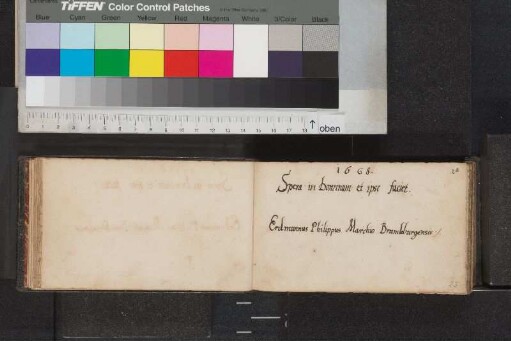 TIFFEN Color Control Patches
Blue Cyan Green Yellow Red Magenta White 3/Color Black
oben
1668.
Spera in Dominum et ipse faciet.
Erdmannus Philippus Marchio Brandeburgensis